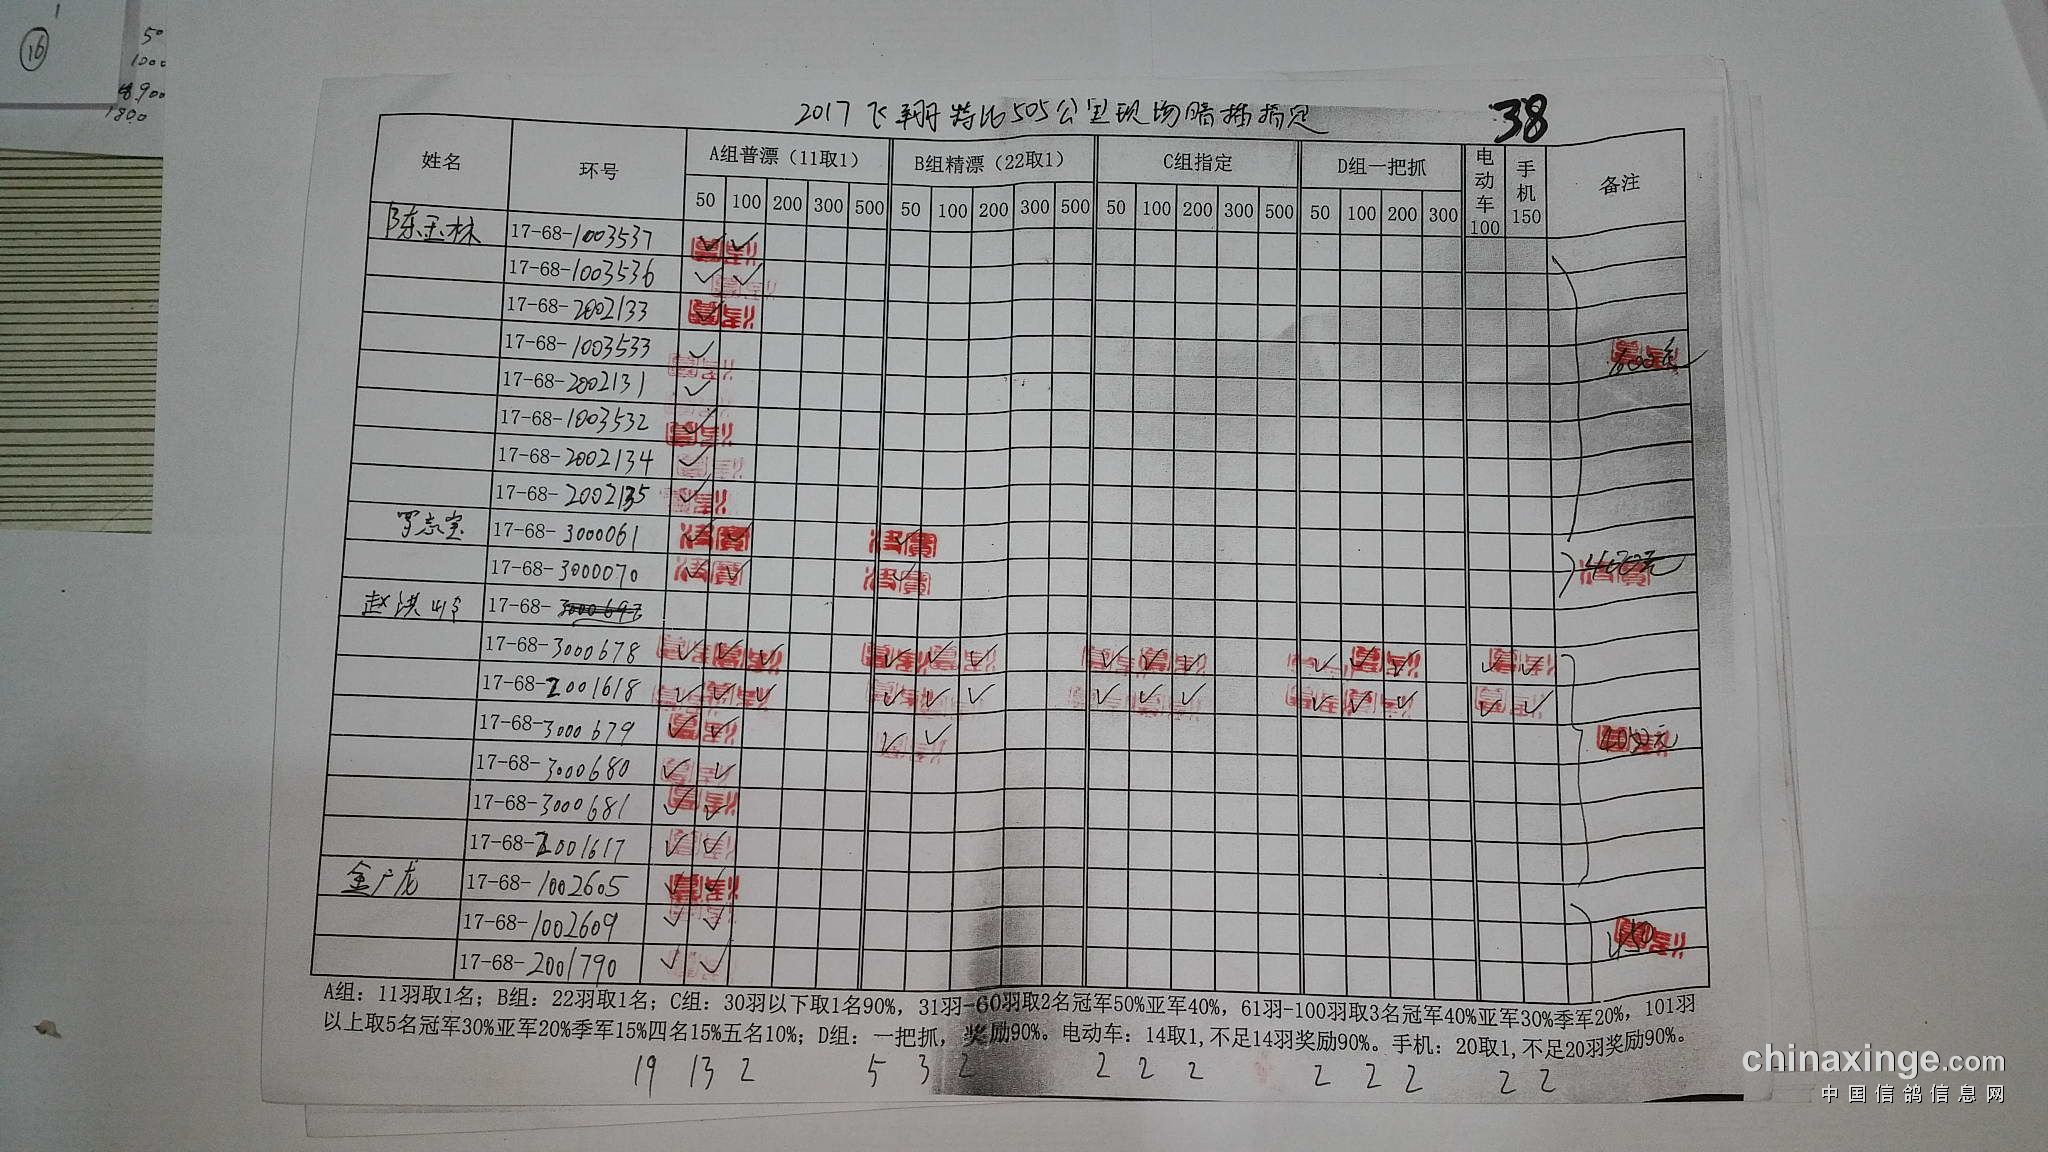 1
16
50
1000
48900
1800
2017飞翔特比505公里现场暗插指定 38
姓名 环号 A组普漂（11取1） B组精漂（22取1） C组指定 D组一把抓 电动车100 手机150 备注
50 100 200 300 500 50 100 200 300 500 50 100 200 300 500 50 100 200 300
陈玉林 17-68-1003537 ✓ ✓
17-68-1003536 ✓ ✓
17-68-2002133 ✓
17-68-1003533 ✓ 600元
17-68-2002131 ✓
17-68-1003532 ✓
17-68-2002134 ✓
17-68-2002135 ✓
罗志宝 17-68-3000061 ✓ ✓ ✓
17-68-3000070 ✓ ✓ ✓ 400元
赵洪 17-68-
17-68-3000678 ✓ ✓ ✓ ✓ ✓ ✓ ✓ ✓ ✓ ✓ ✓ ✓ ✓ ✓
17-68-2001618 ✓ ✓ ✓ ✓ ✓ ✓ ✓ ✓ ✓ ✓ ✓ ✓ ✓ ✓
17-68-3000679 ✓ ✓ ✓ ✓
17-68-3000680 ✓ ✓
17-68-3000681 ✓ ✓
17-68-2001617 ✓ ✓
金广龙 17-68-1002605 ✓ ✓
17-68-1002609 ✓ ✓ 450
17-68-2001790 ✓ ✓
A组：11羽取1名；B组：22羽取1名；C组：30羽以下取1名90%，31羽-60羽取2名冠军50%亚军40%，61羽-100羽取3名冠军40%亚军30%季军20%，101羽
以上取5名冠军30%亚军20%季军15%四名15%五名10%；D组：一把抓，奖励90%。电动车：14取1,不足14羽奖励90%。手机：20取1,不足20羽奖励90%。
19 13 2 5 3 2 2 2 2 2 2 2 2 2
chinaxinge.com
中国信鸽信息网